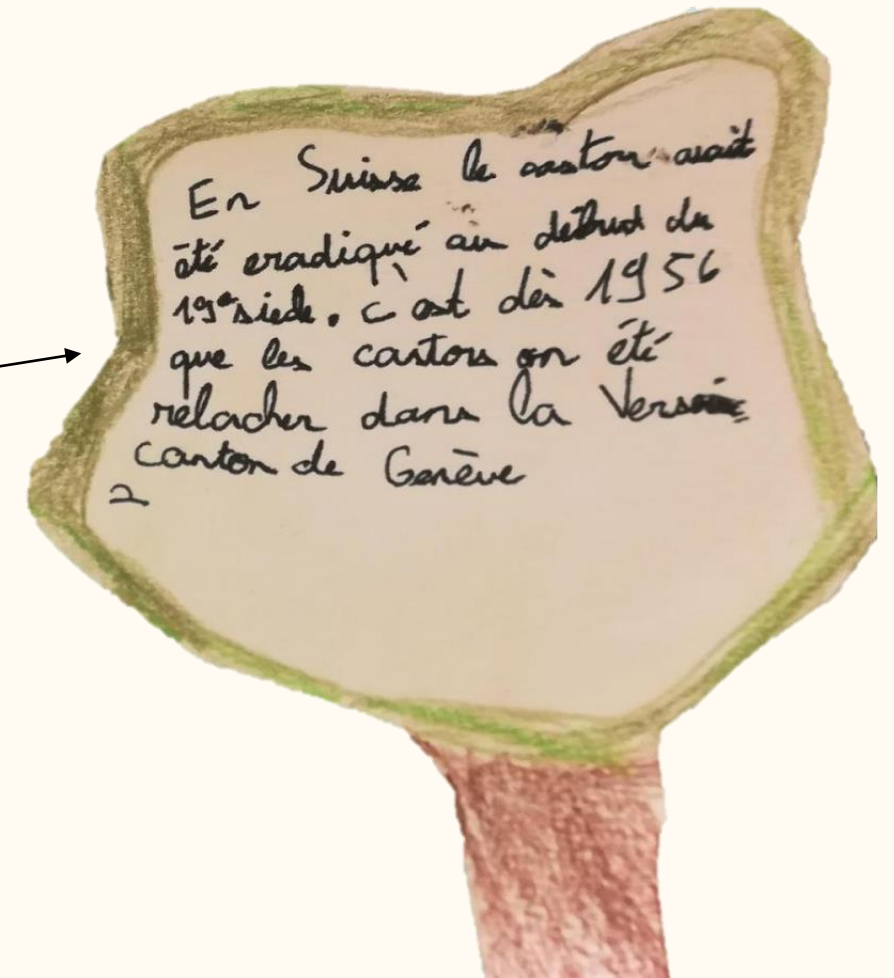 En Suisse le castor avait
été eradiqué au début du
19e siecle. c'est dès 1956
que les castors on été
relacher dans la
canton de Genève
2